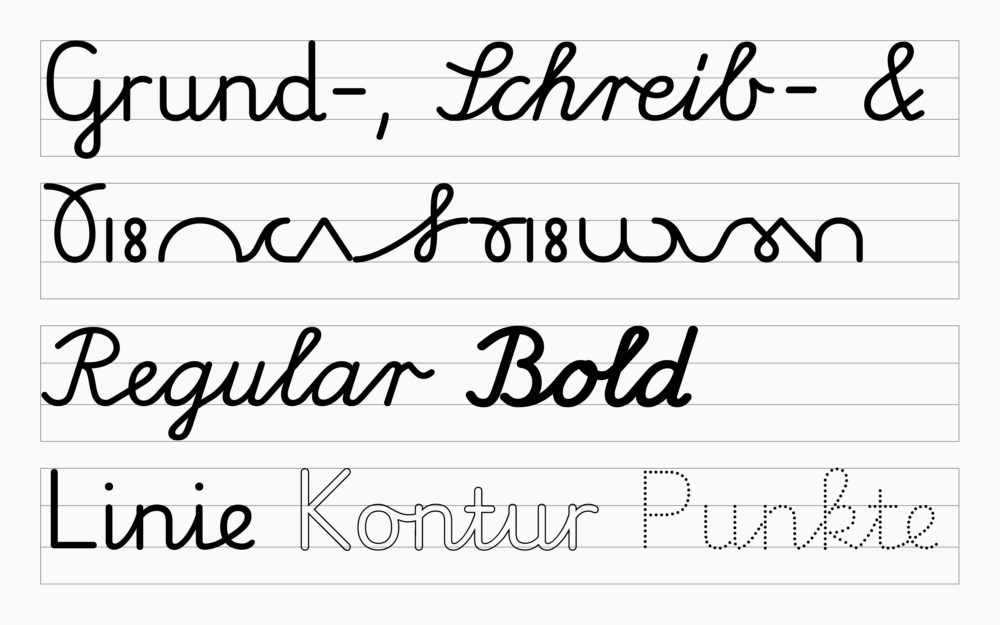 Grund-, Schreib- &
Regular Bold
Linie Kontur Punkte